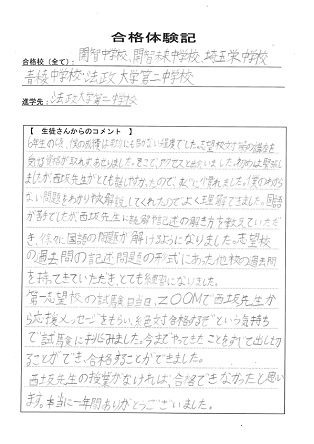 合格体験記
合格校(全て): 開智中学校、開智未来中学校、埼玉栄中学校
青稜中学校・法政大学第二中学校
進学先: 法政大学第二中学校
【 生徒さんからのコメント 】
6年生の頃、僕の成績は
した。そこで、アクセスと出会いました。
ましたが、西坂先生がとても話しやすかったので、
ない問題をわかりやすく解説してくれたのでよく理解できました。国語
が苦手でしたが、西坂先生に読解や記述の解き方を教えていただ
き、徐々に国語の問題が解けるようになりました。志望校
の過去問の記述問題の形式にあった他校の過去問
を持ってきていただき、とても練習になりました。
第一志望校の試験日当日、ZOOMで西坂先生か
ら応援メッセージをもらい、絶対合格するぞという気持ち
で試験に挑みました。今までやってきたことをすべて出し切る
ことができ、合格することができました。
西坂先生の授業がなければ、合格できなかったと思い
ます。本当に一年間ありがとうございました。